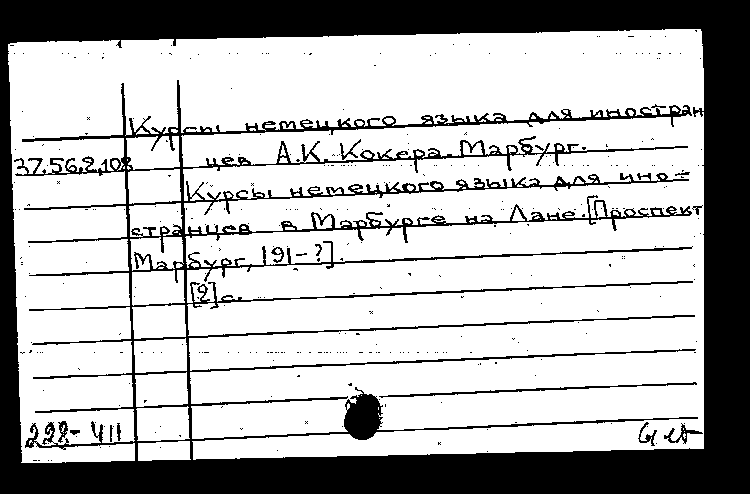 Курсы немецкого языка для иностран
37.56.2.108 цев А.К. Кокера. Марбург.
Курсы немецкого языка для ино=
странцев в Марбурге на Лане. [Проспект
Марбург, 191-?].
[2] с.
228-411